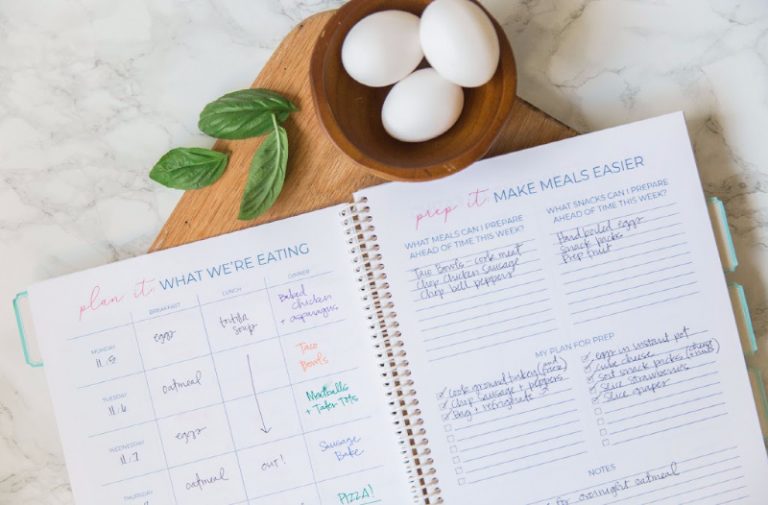 plan it: WHAT WE'RE EATING
BREAKFAST LUNCH DINNER
MONDAY
11.5
eggs
tortilla
soup
Baked
chicken
+ asparagus
Taco
Bowls
TUESDAY
11.6
oatmeal
Meatballs
+ Tater Tots
WEDNESDAY
11.7
eggs
Sausage
Bake
THURSDAY
oatmeal
out!
PIZZA!
prep it: MAKE MEALS EASIER
WHAT MEALS CAN I PREPARE
AHEAD OF TIME THIS WEEK?
Taco Bowls - cook meat
Chop Chicken Sausage
Chop bell peppers
WHAT SNACKS CAN I PREPARE
AHEAD OF TIME THIS WEEK?
Hard boiled eggs
snack packs
Prep fruit
MY PLAN FOR PREP
cook ground turkey (and
Chop sausage + peppers
Bag + refrigerate
eggs in instant pot
cube cheese
sort snack packs
Slice strawberries
Slice grapes
NOTES
for overnight oatmeal